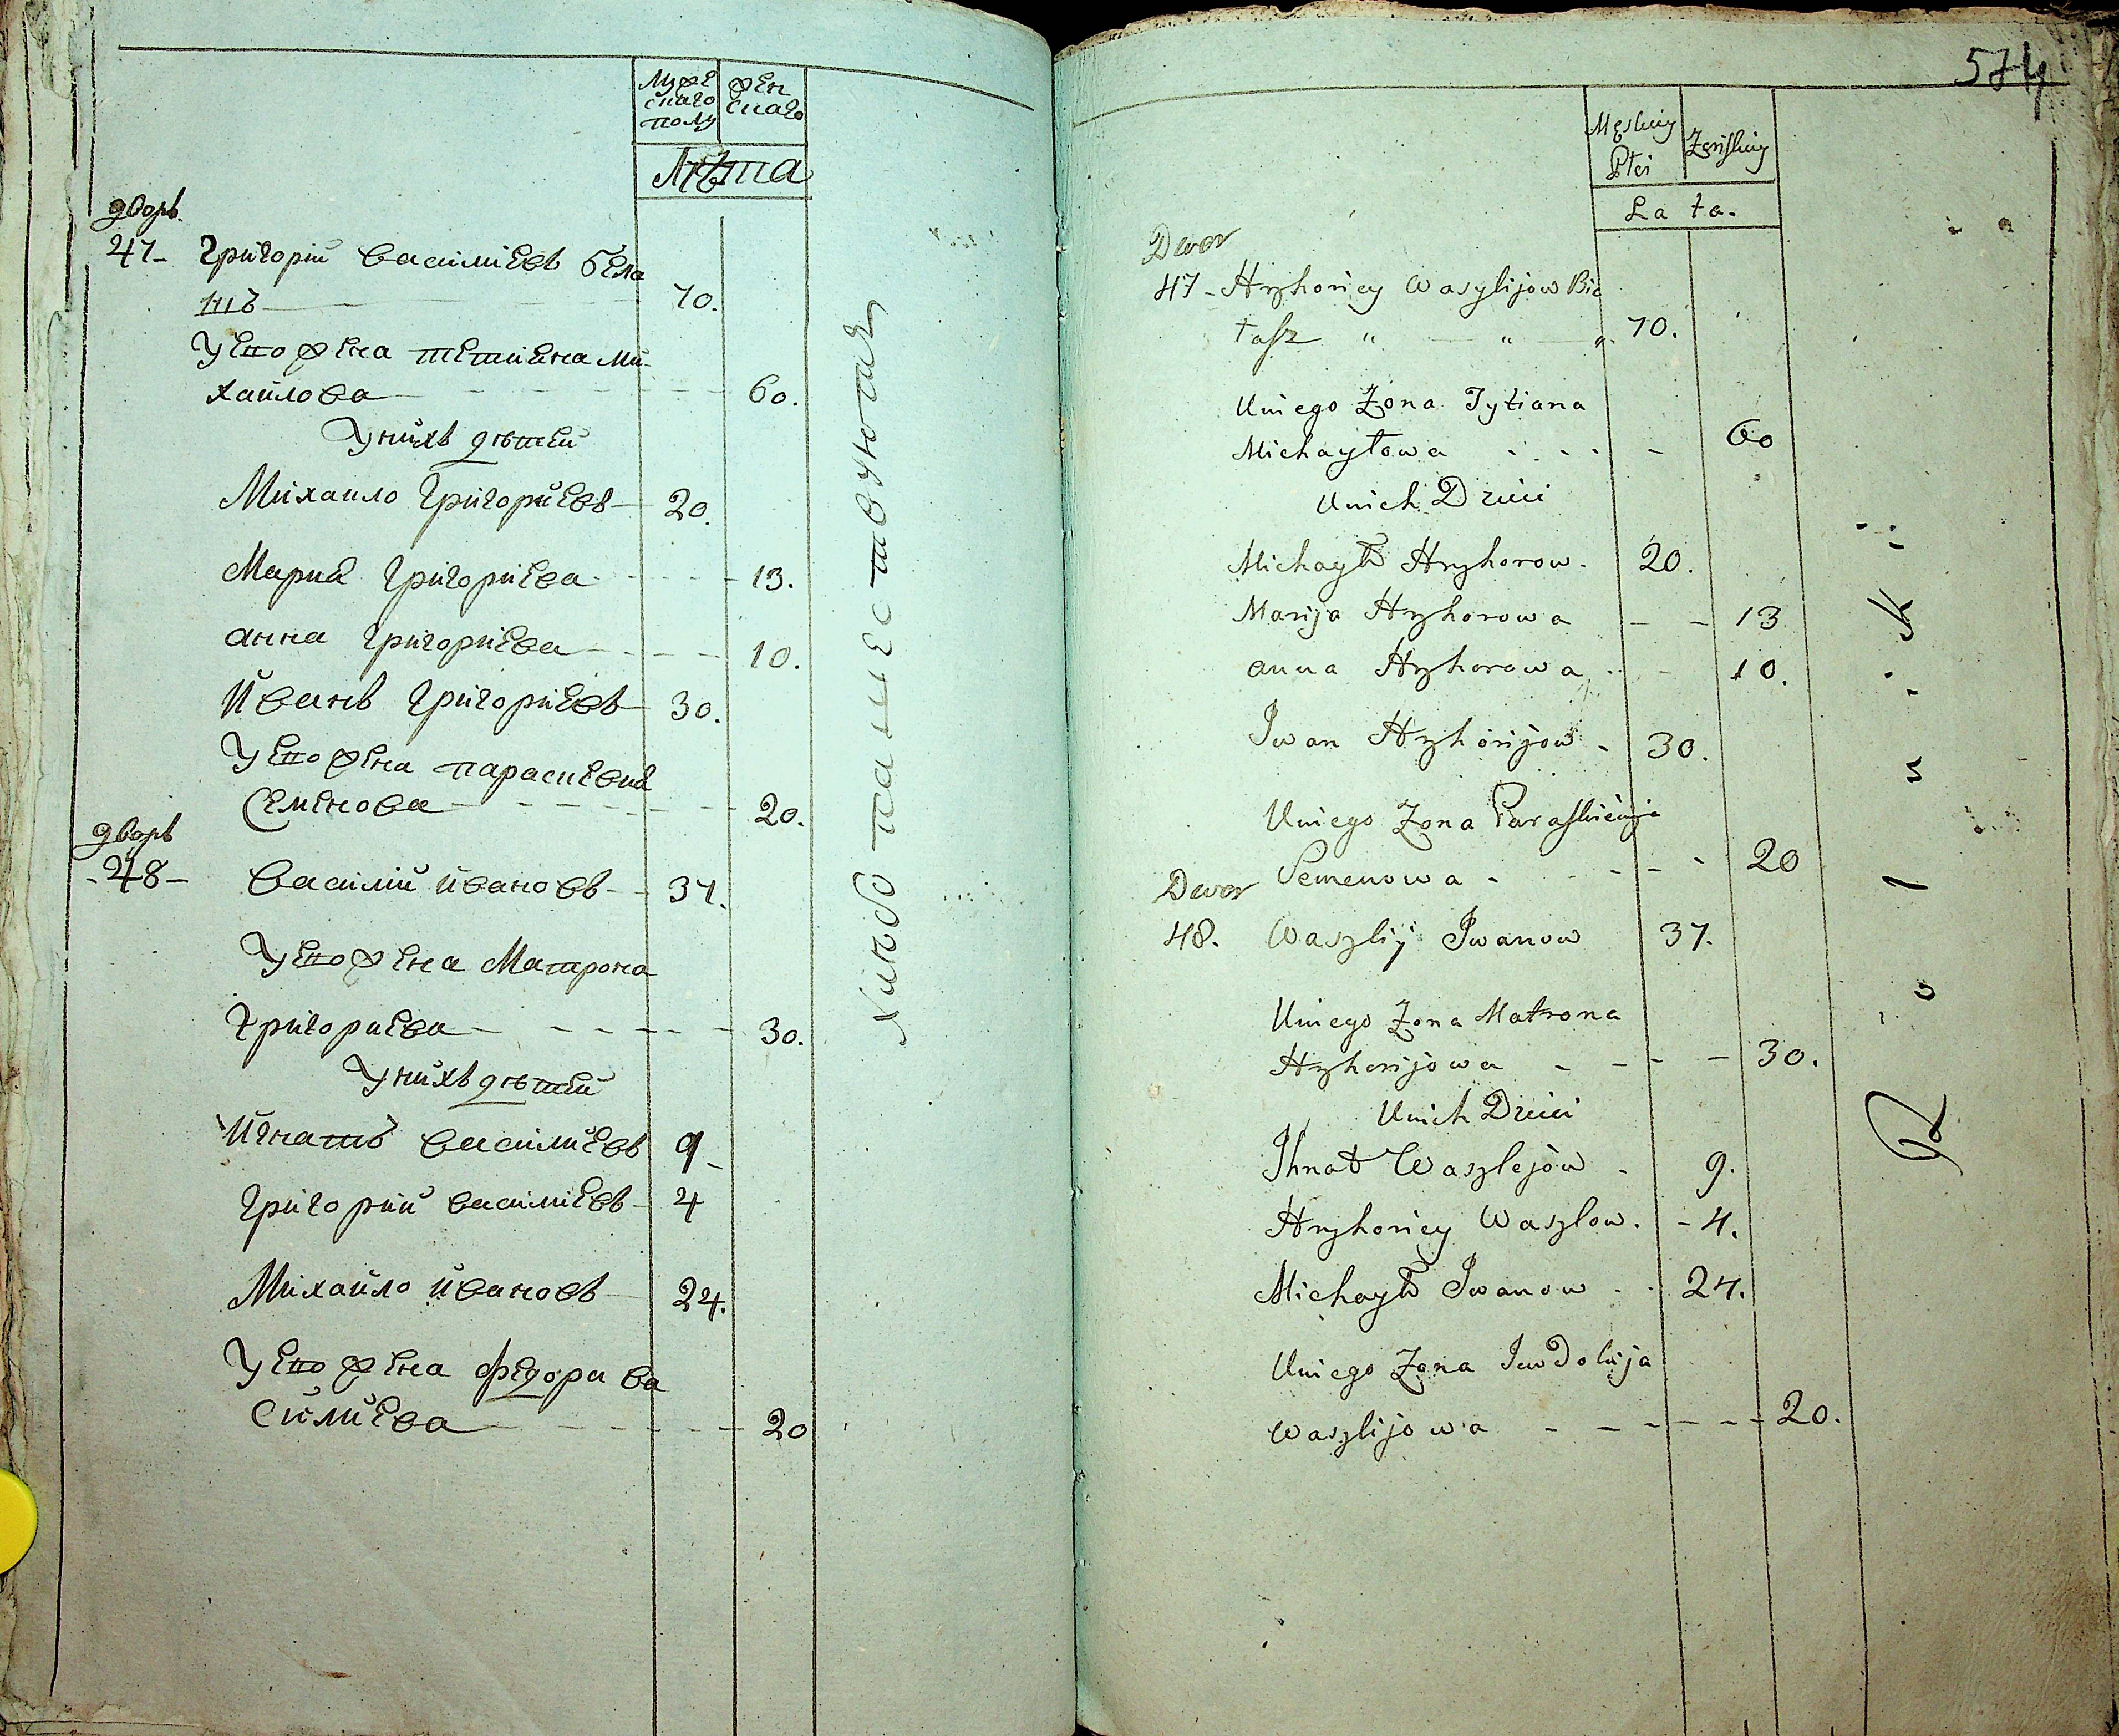 Муже
скаго
полу
жен
скаго
Лѣта
дворъ
47- Григорій Василіевъ Бела
шъ 70.
У его жена Тетиена Ми-
хайлова 60.
У нихъ дѣтей
Михайло Григоріевъ 20.
Мариа Григориева 13.
анна Григориева 10.
Иванъ Григориевъ 30.
У его жена Параскевиа
Семенова 20.
дворъ
-48- Василій Ивановъ 37.
У его жена Матрона
Григориева 30.
У нихъ дѣтей
Игнатъ Василиевъ 9
Григорий Василиевъ 4
Михайло Ивановъ 24.
У его жена Федора Ва
силиева 20
Хлѣбопашествуютъ
574
Męskiey
Płci
Żeńskiey
Lata.
Dwor
47- Hryhoriey Wasylijow Bie
łasz " " " 70.
U niego Żona Tytiana
Michayłowa 60
U nich Dzieci
Michayło Hryhorow. 20.
Marija Hryhorowa 13
anna Hryhorowa 10.
Iwan Hryhorijow 30.
U niego Żona Paraskiewija
Semenowa 20
Dwor
48. Wasylij Iwanow 37.
U niego Żona Matrona
Hryhorijowa 30.
U nich Dzieci
Ihnat Wasylejow 9.
Hryhoriey Wasylow. 4.
Michayło Iwanow 24.
U niego Żona Iewdokija
Wasylijowa 20.
Rolniki